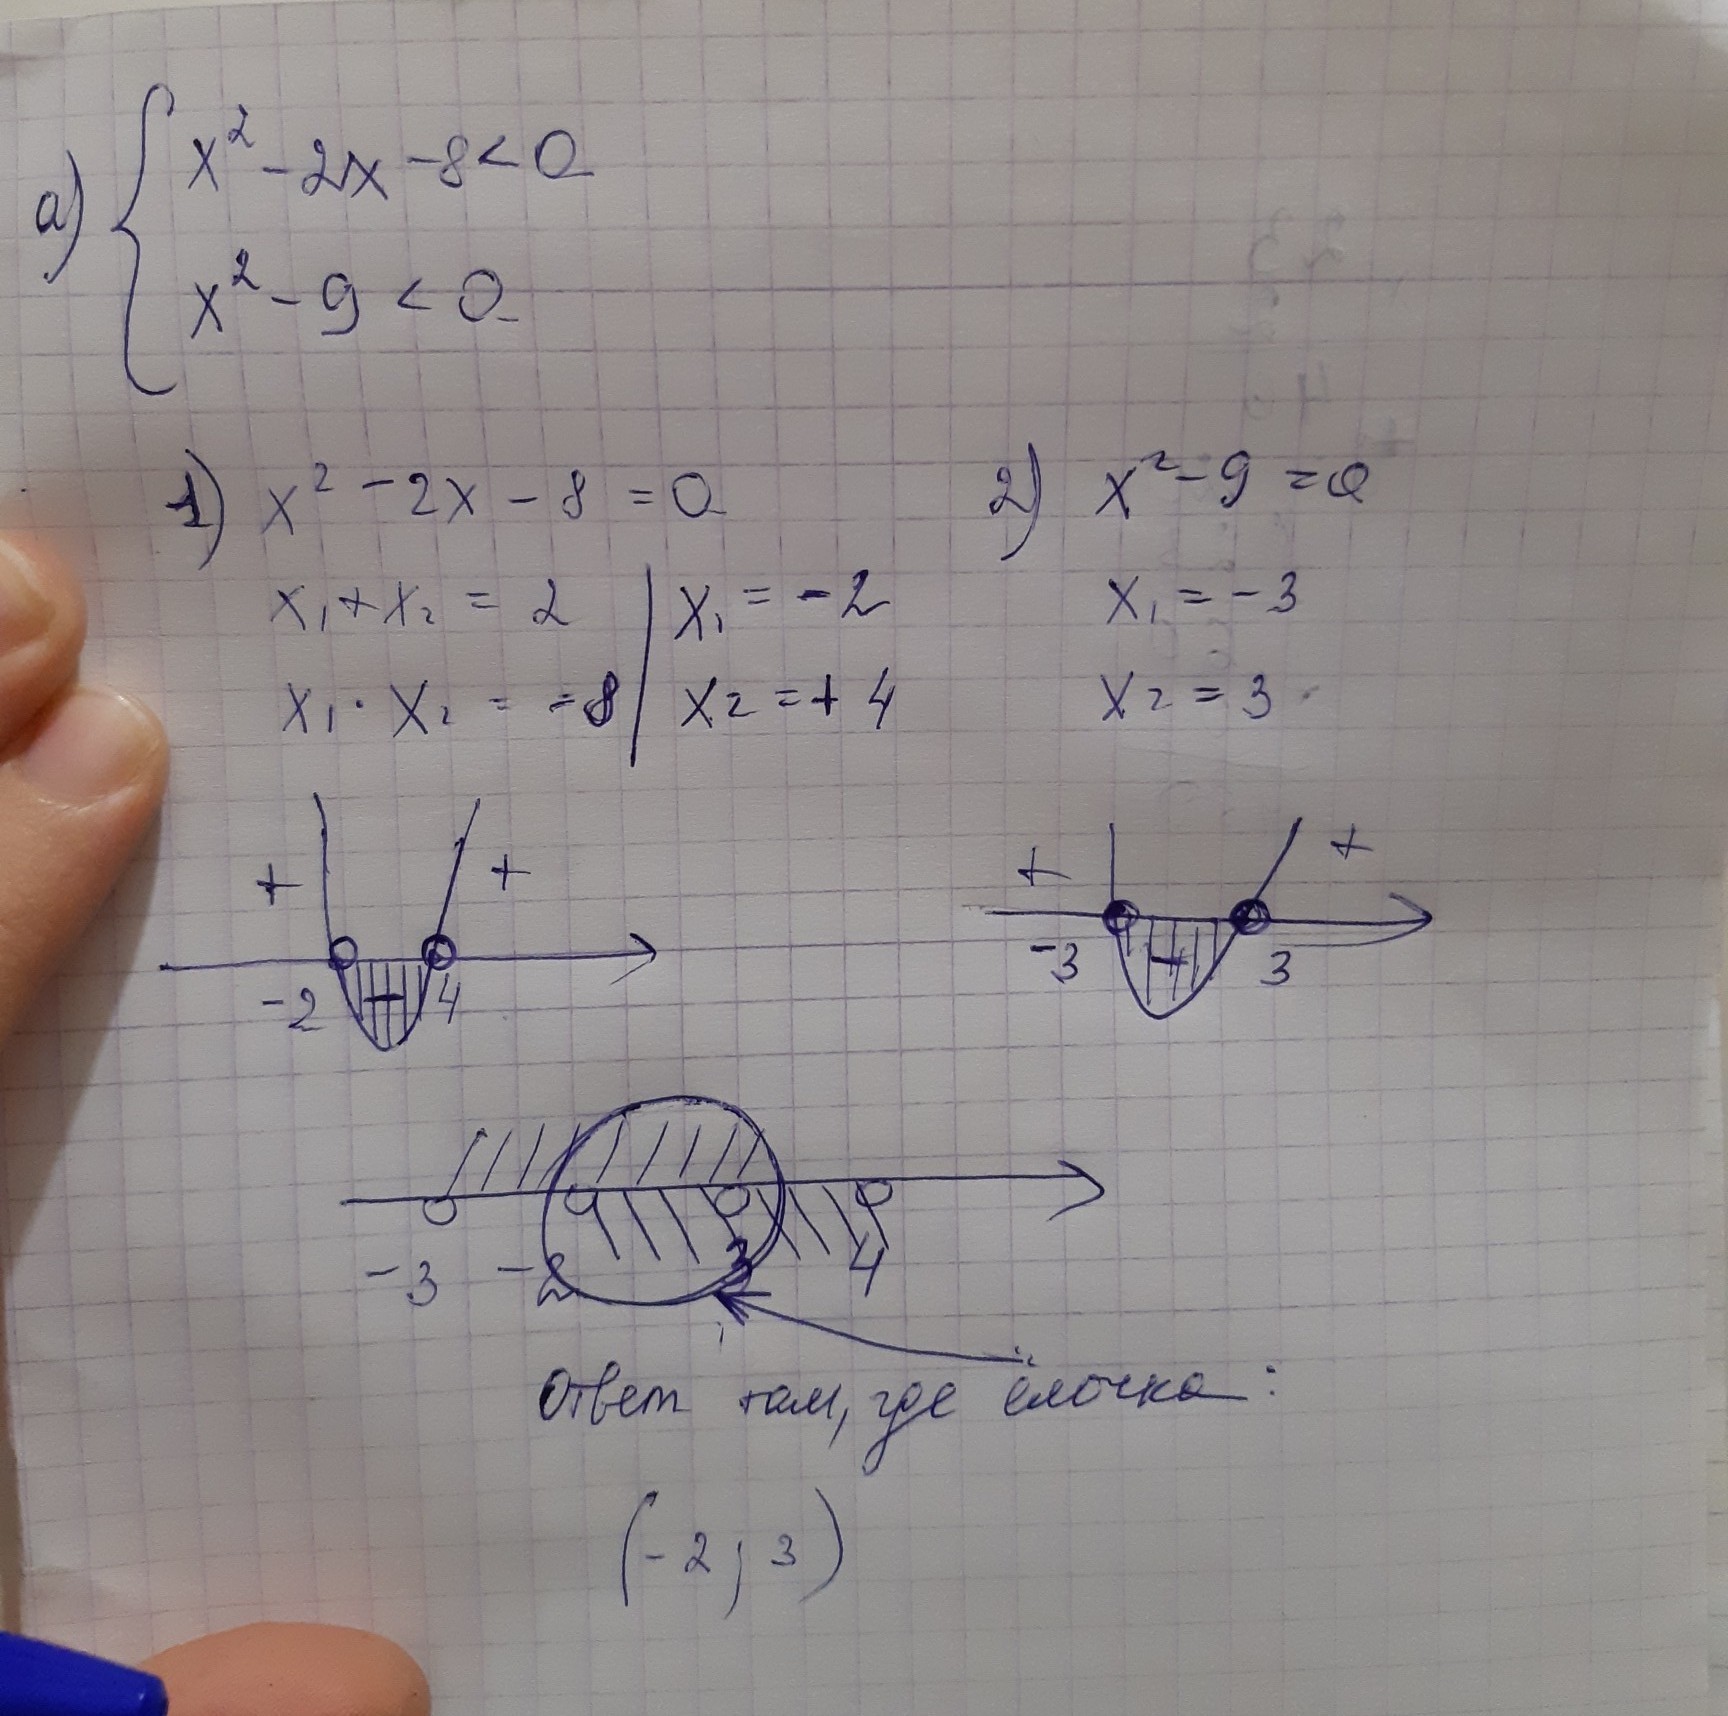 а) { x² - 2x - 8 < 0
x² - 9 < 0
1) x² - 2x - 8 = 0
x₁ + x₂ = 2 | x₁ = -2
x₁ · x₂ = -8 | x₂ = +4
2) x² - 9 = 0
x₁ = -3
x₂ = 3
+ +
-2 - 4
+ +
-3 - 3
-3 -2 3 4
Ответ там, где ёлочка:
(-2; 3)